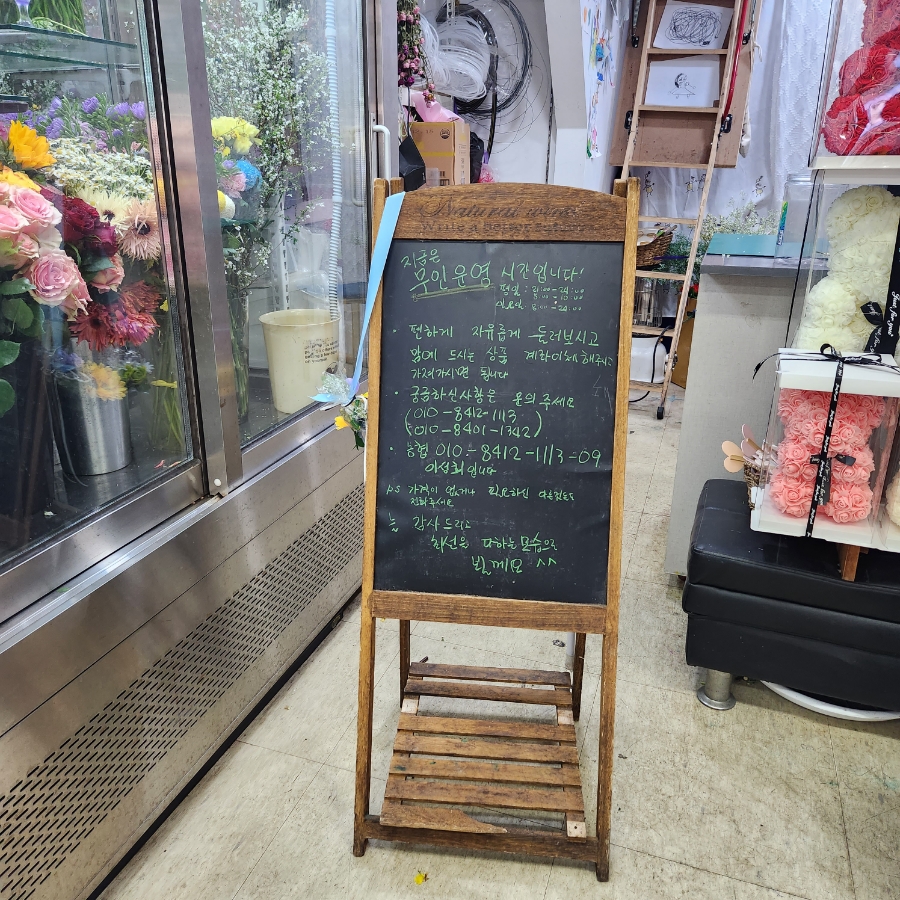 Natural
지금은
무인운영 시간입니다!
평일 : 21:00 - 24:00
- 10:00
일요일 : 8:00 - 24:00
· 편하게 자유롭게 둘러보시고
맘에 드시는 상품 계좌이체 해주시고
가져가시면 됩니다
· 궁금하신사항은 문의주세요
(010-8412-1113
010-8401-1342)
· 농협 010-8412-1113-09
이선희입니다
ps 가격이 없거나 필요하신
전화주세요
늘 감사드리고
최선을 다하는 모습으로
뵐게요 ^^